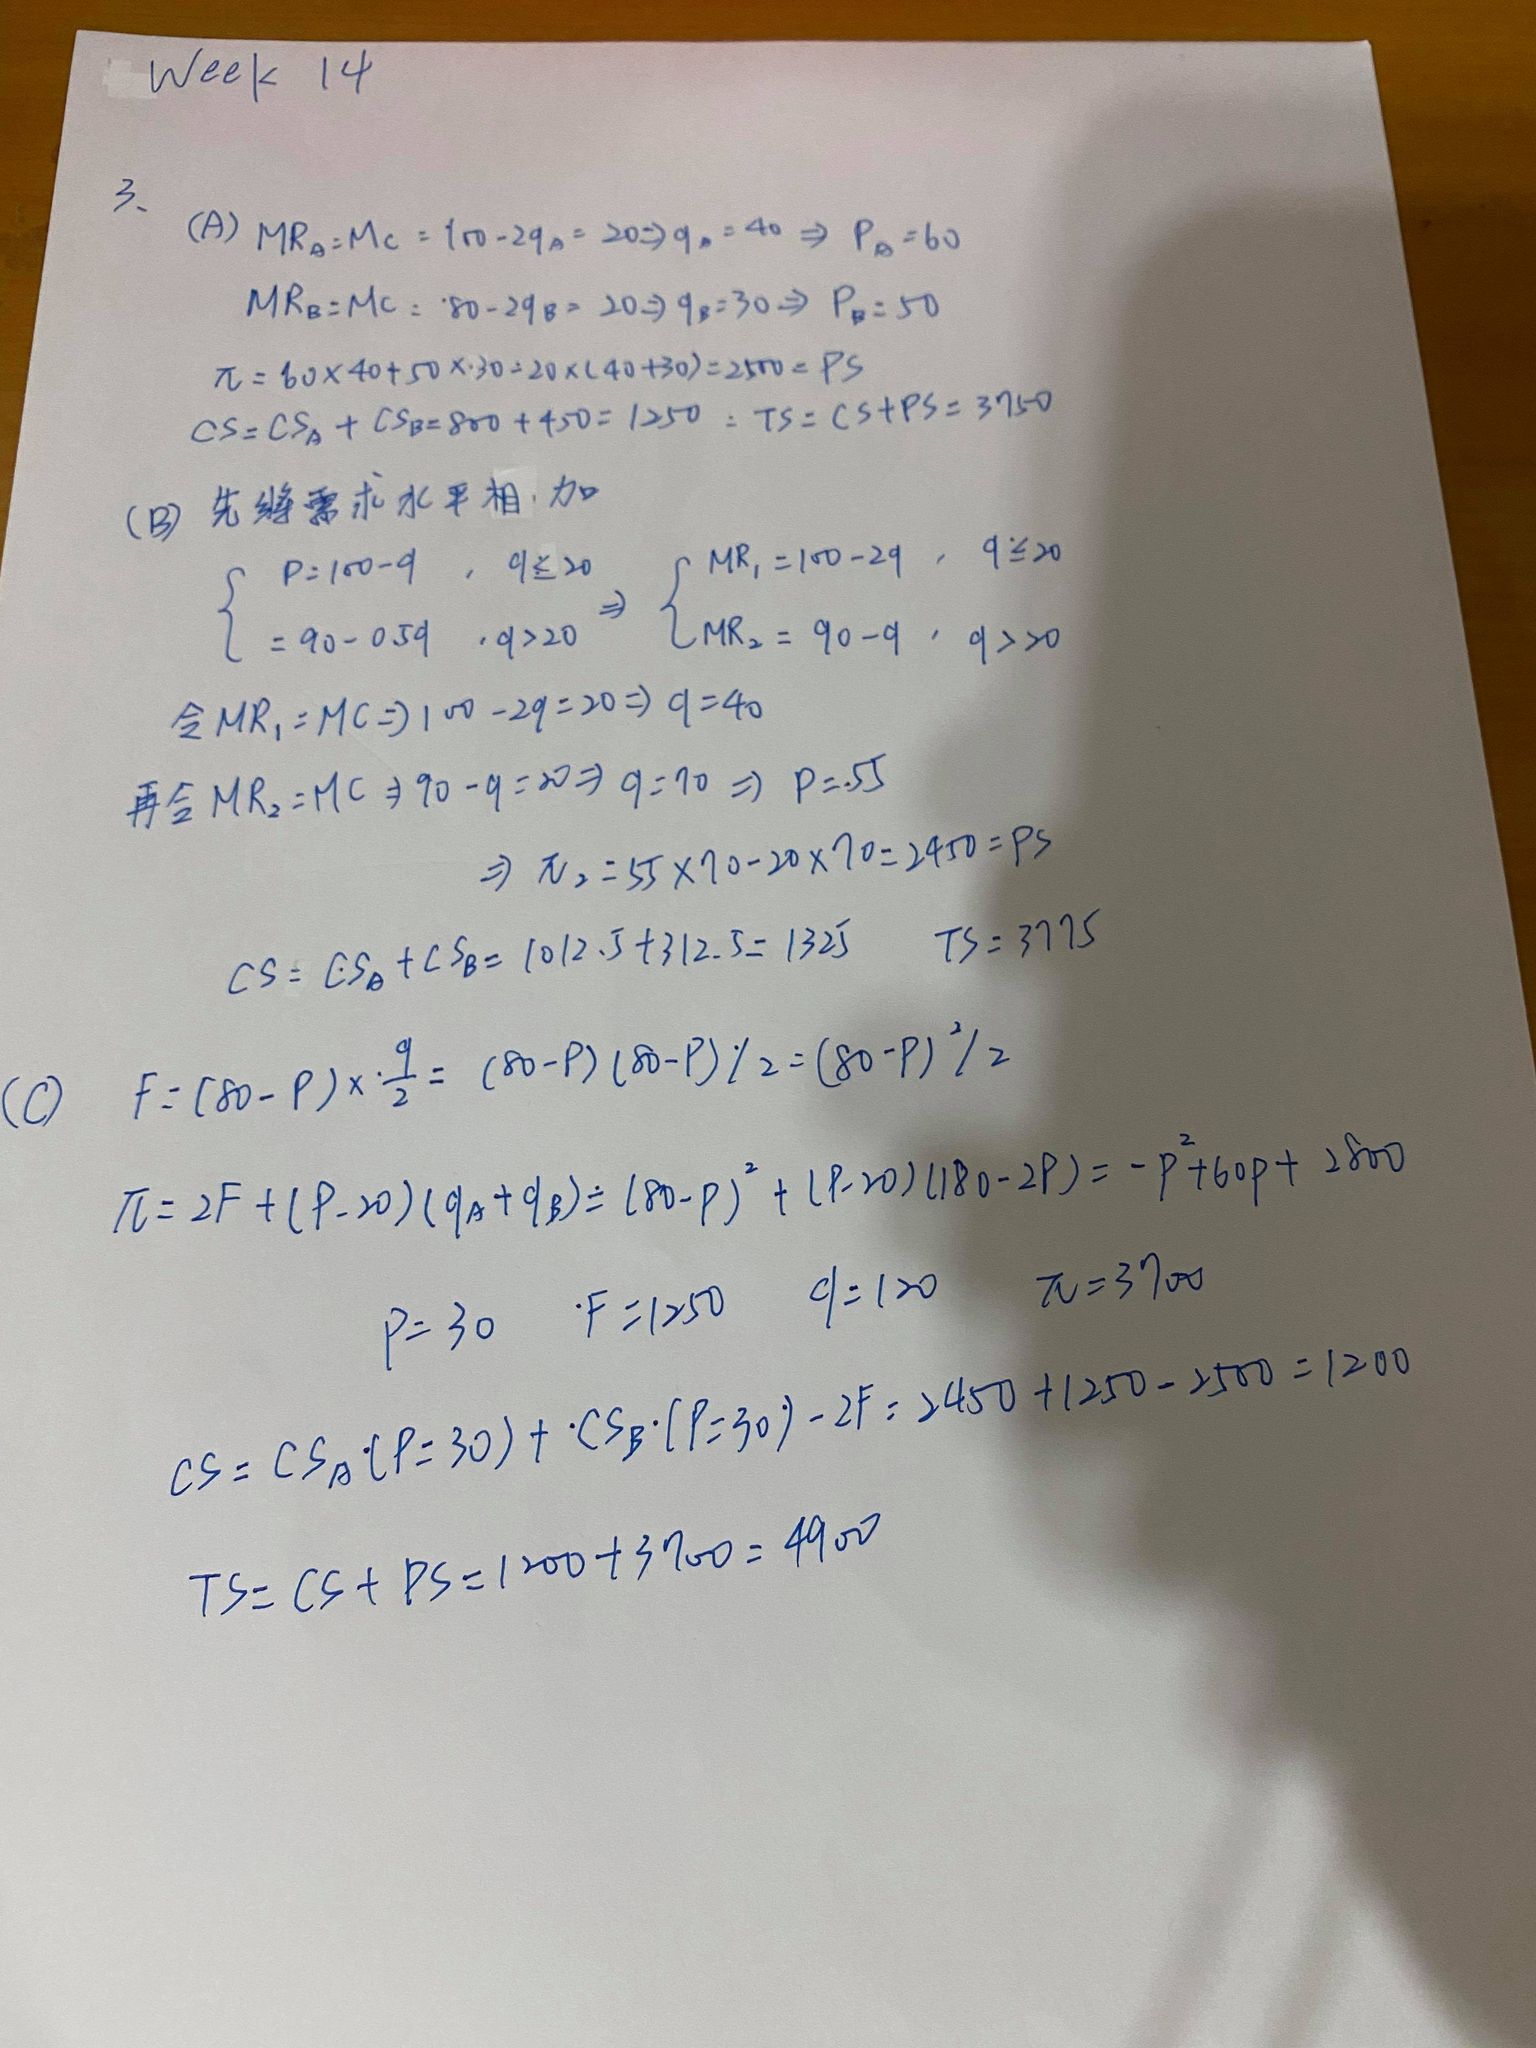 Week 14
3、
(A) MR_A=MC=100-2q_A=20⇒q_A=40⇒P_A=60
MR_B=MC=80-2q_B=20⇒q_B=30⇒P_B=50
π=60×40+50×30-20×(40+30)=2500=PS
CS=CS_A+CS_B=800+450=1250 = TS=CS+PS=3750
(B) 先將需求水平相加
{ P=100-q , q≤20 ⇒ { MR₁=100-2q , q≤20
=90-0.5q , q>20 MR₂=90-q , q>20
令MR₁=MC⇒100-2q=20⇒q=40
再令MR₂=MC⇒90-q=20⇒q=70⇒P=55
⇒π₂=55×70-20×70=2450=PS
CS=CS_A+CS_B=1012.5+312.5=1325 TS=3775
(C) F=(80-P)×q/2=(80-P)(80-P)/2=(80-P)²/2
π=2F+(P-20)(q_A+q_B)=(80-P)²+(P-20)(180-2P)=-P²+60P+2800
P=30 F=1250 q=120 π=3700
CS=CS_A(P=30)+CS_B(P=30)-2F=2450+1250-2500=1200
TS=CS+PS=1200+3700=4900